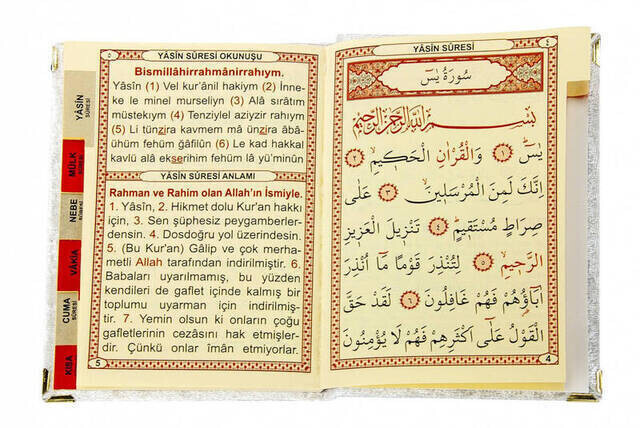 ٥
YÂSİN SÛRESİ OKUNUŞU
Bismillâhirrahmânirrahıym.
Yâsîn (1) Vel kur'ânil hakiym (2) İnne-
ke le minel murseliyn (3) Alâ sırâtım
müstekıym (4) Tenziylel aziyzir rahıym
(5) Li tünzira kavmem mâ ünzira âbâ-
ühüm fehüm ğâfilûn (6) Le kad hakkal
kavlü alâ ekserihim fehüm lâ yü'minûn
YÂSİN SÛRESİ ANLAMI
Rahman ve Rahim olan Allah'ın İsmiyle.
1. Yâsîn, 2. Hikmet dolu Kur'an hakkı
için, 3. Sen şüphesiz peygamberler-
densin. 4. Dosdoğru yol üzerindesin.
5. (Bu Kur'an) Gâlip ve çok merha-
metli Allah tarafından indirilmiştir. 6.
Babaları uyarılmamış, bu yüzden
kendileri de gaflet içinde kalmış bir
toplumu uyarman için indirilmiş-
tir. 7. Yemin olsun ki onların çoğu
gafletlerinin cezâsını hak etmişler-
dir. Çünkü onlar îmân etmiyorlar.
5
YÂSİN
SÛRESİ
MÜLK
SÛRESİ
NEBE
SÛRESİ
VÂKIA
CUMA
SÛRESİ
KISA
٤
YÂSİN SÛRESİ
سُورَةُ يٰسٓ
بِسْمِ اللهِ الرَّحْمٰنِ الرَّحِيمِ
يٰسٓ ﴿١﴾ وَالْقُرْاٰنِ الْحَكِيمِ ﴿٢﴾
اِنَّكَ لَمِنَ الْمُرْسَلِينَ ﴿٣﴾ عَلٰى
صِرَاطٍ مُسْتَقِيمٍ ﴿٤﴾ تَنْزِيلَ الْعَزِيزِ
الرَّحِيمِ ﴿٥﴾ لِتُنْذِرَ قَوْمًا مَٓا اُنْذِرَ
اٰبَٓاؤُهُمْ فَهُمْ غَافِلُونَ ﴿٦﴾ لَقَدْ حَقَّ
الْقَوْلُ عَلٰٓى اَكْثَرِهِمْ فَهُمْ لَا يُؤْمِنُونَ
4